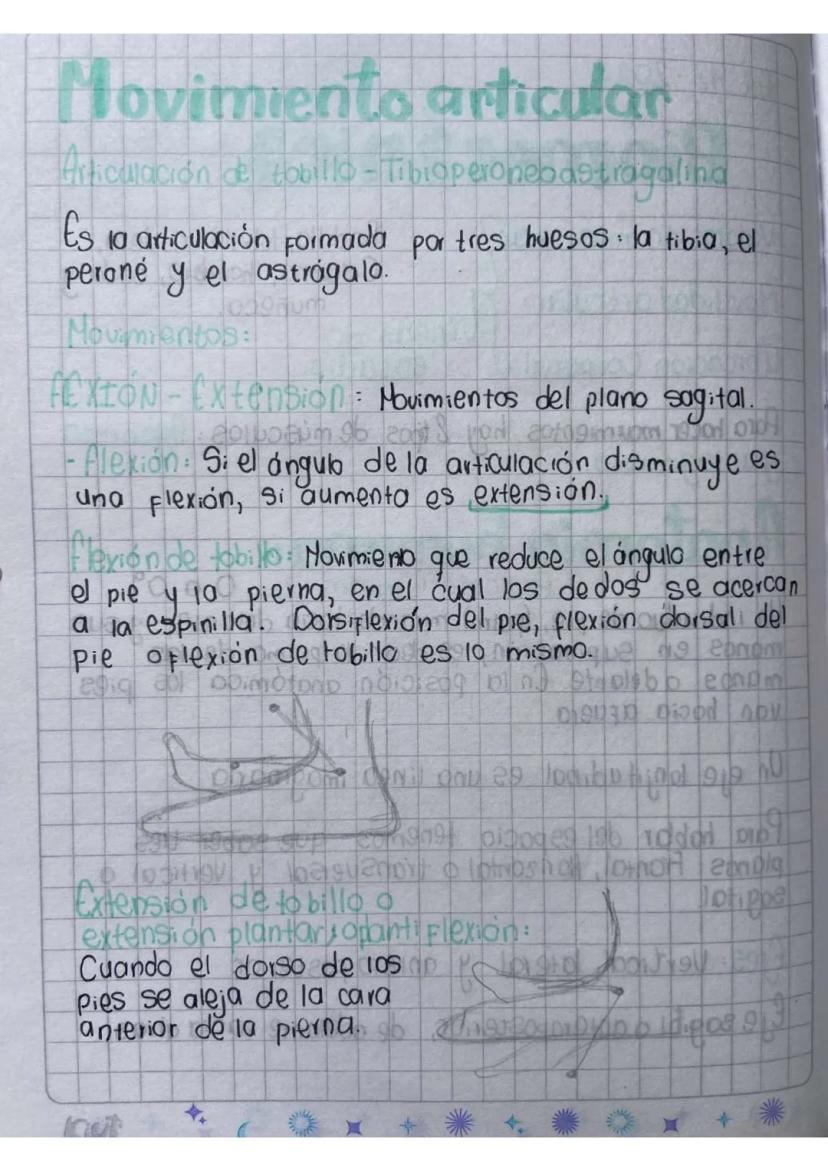 Movimiento articular
Articulación de tobillo - Tibioperoneoastragalina
Es la articulación formada por tres huesos: la tibia, el
peroné y el astrágalo.
Movimientos:
Flexión - Extensión: Movimientos del plano sagital.
- Flexión: Si el ángulo de la articulación disminuye es
una flexión, si aumenta es extensión.
Flexión de tobillo: Movimieno que reduce el ángulo entre
el pie y la pierna, en el cual los dedos se acercan
a la espinilla. Dorsiflexión del pie, flexión dorsal del
pie o flexión de tobillo es lo mismo.
Extensión de tobillo o
extensión plantar flexión:
Cuando el dorso de los
pies se aleja de la cara
anterior de la pierna.